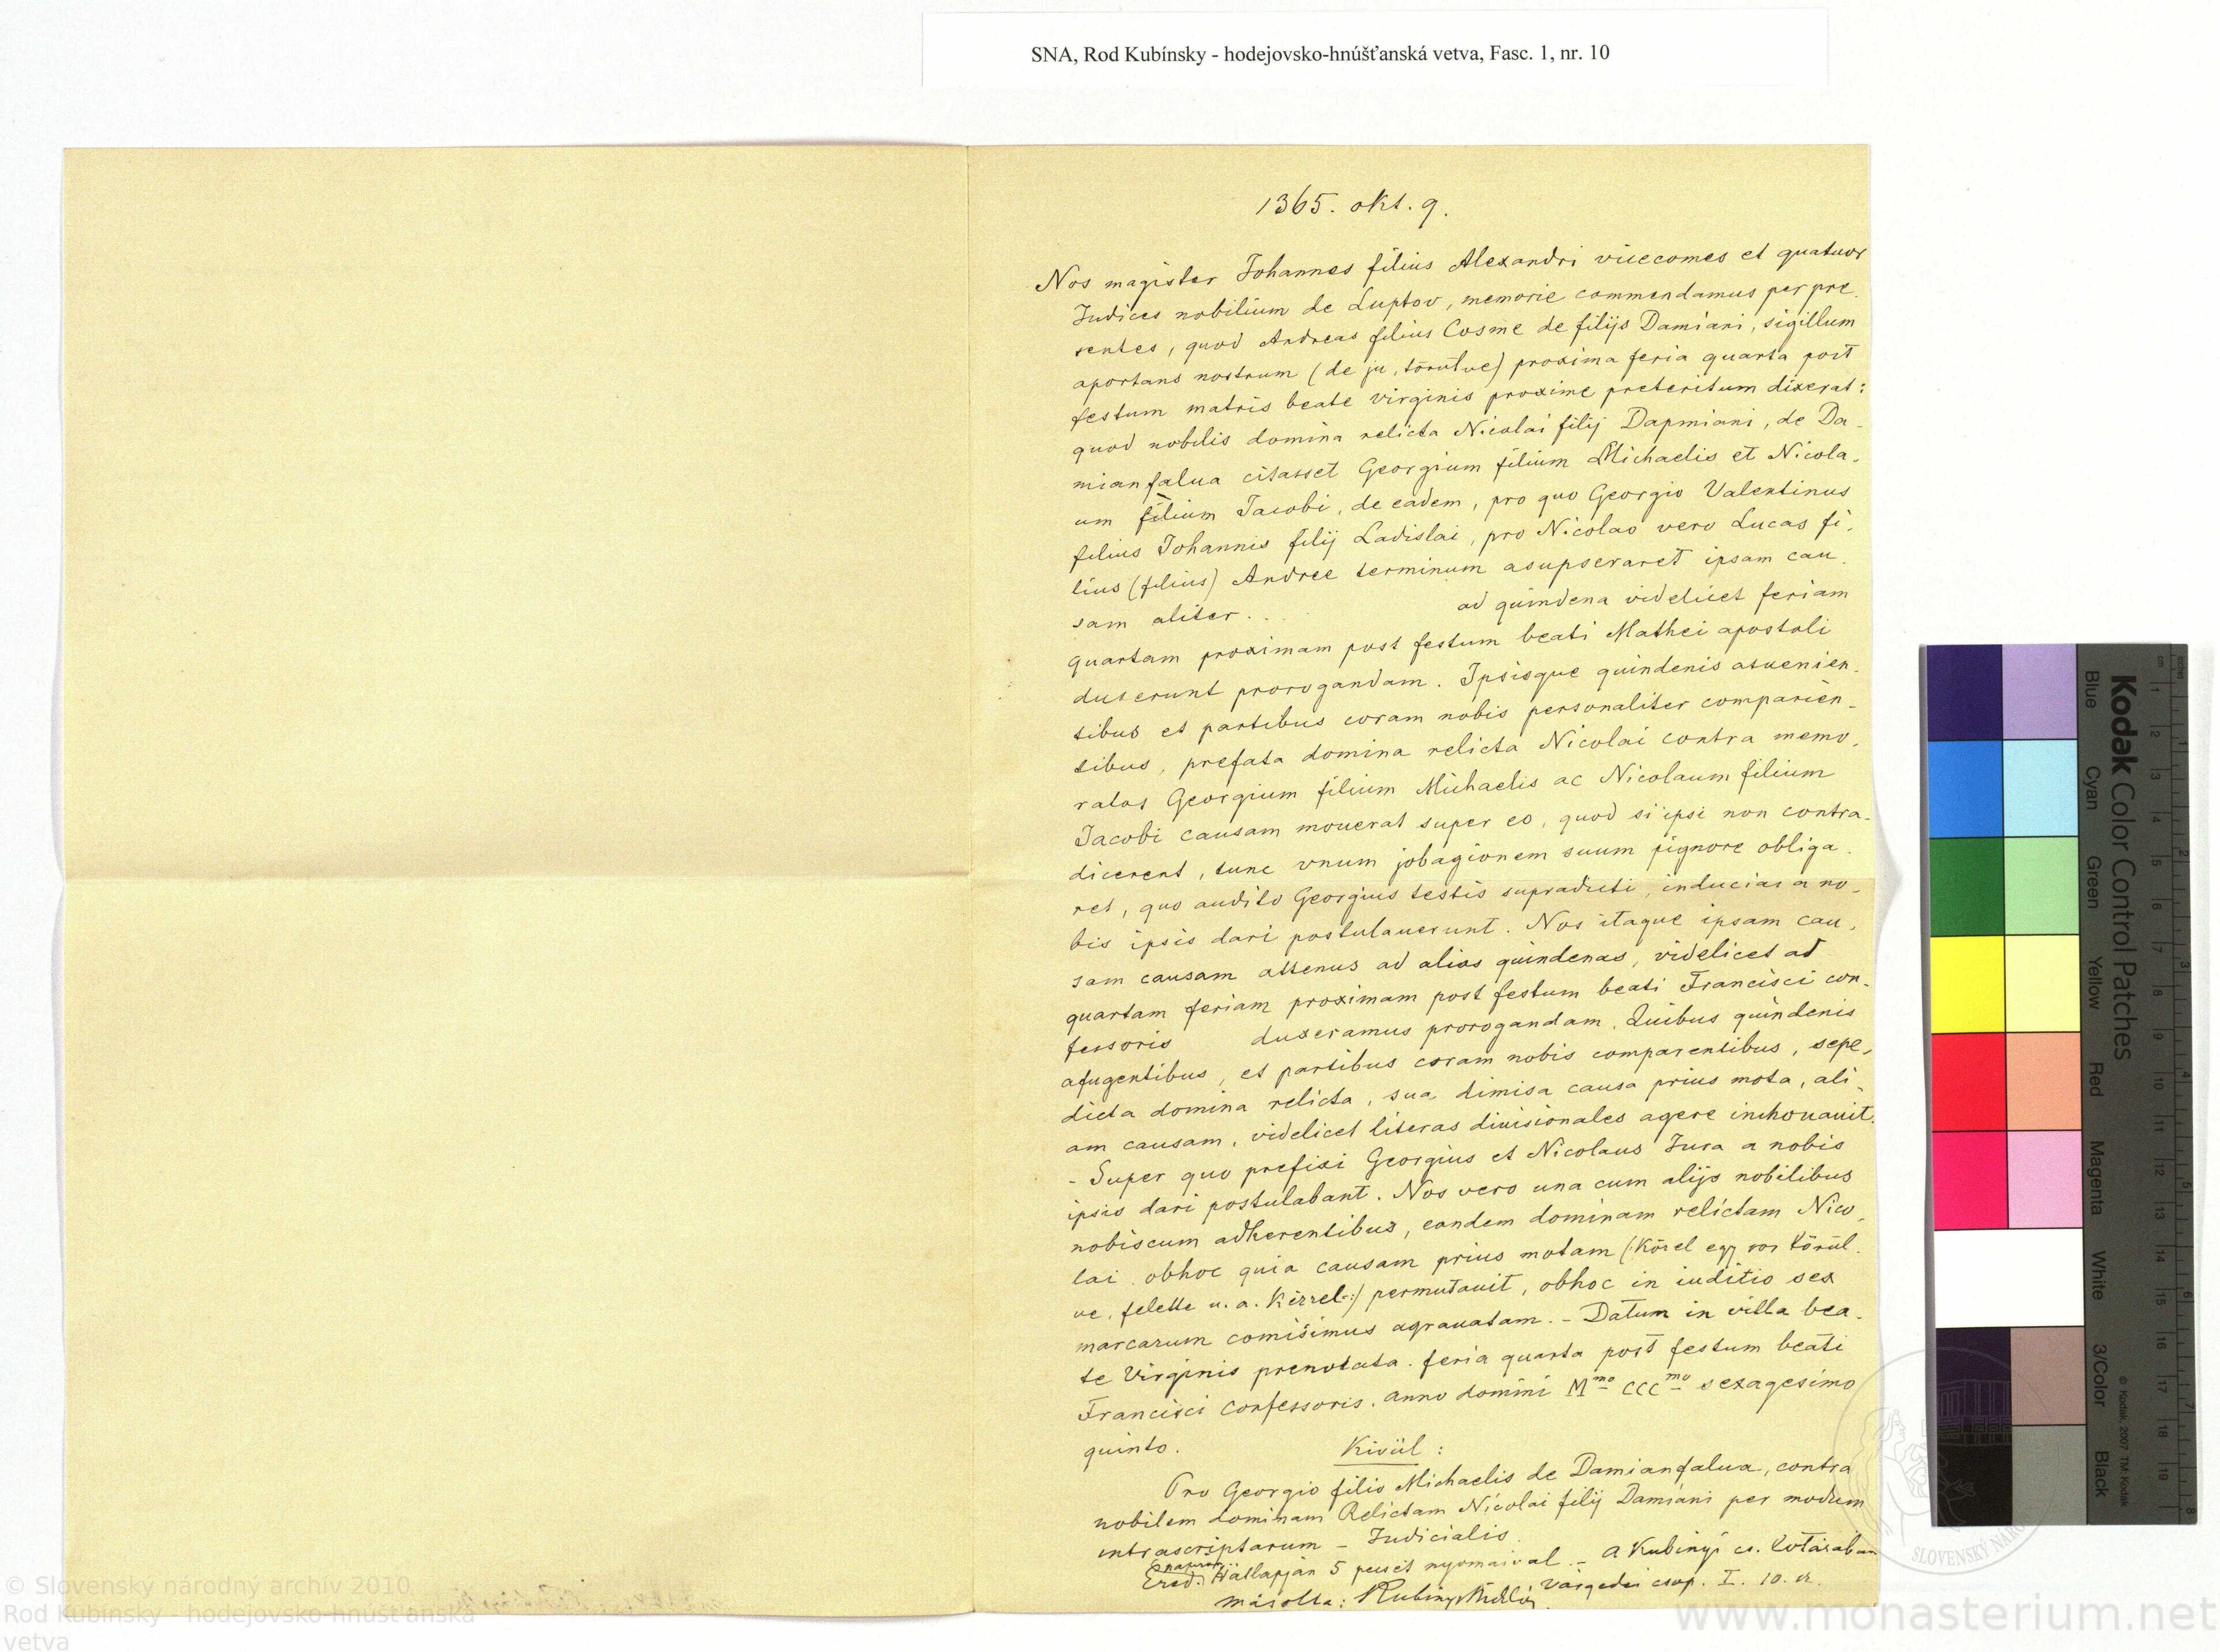 SNA, Rod Kubínsky - hodejovsko-hnúšťanská vetva, Fasc. 1, nr. 10
1365. okt. 9.
Nos magister Johannes filius Alexandri vicecomes et quatuor
Judices nobilium de Luptov, memorie commendamus per pre-
sentes, quod Andreas filius Cosme de filijs Damiani, sigillum
aportans nostrum (de ju, törütve) proxima feria quarta post
festum matris beate virginis proxime preteritum dixerat:
quod nobilis domina relicta Nicolai filij Dapmiani, de Da-
mianfalua citasset Georgium filium Michaelis et Nicola-
um filium Jacobi, de eadem, pro quo Georgio Valentinus
filius Johannis filij Ladislai, pro Nicolao vero Lucas fi-
lius (filius) Andree terminum asupseraret ipsam cau-
sam aliter . . . ad quindena videlicet feriam
quartam proximam post festum beati Mathei apostoli
duxerunt prorogandam. Ipsisque quindenis asuenien-
tibus et partibus coram nobis personaliter comparien-
tibus, prefata domina relicta Nicolai contra memo-
ratos Georgium filium Michaelis ac Nicolaum filium
Jacobi causam mouerat super eo, quod si ipsi non contra-
dicerent, tunc vnum jobagionem suum pignore obliga-
ret, quo audito Georgius testis supradicti, inducias a no-
bis ipsis dari postulauerunt. Nos itaque ipsam cau-
sam causam attenus ad alias quindenas, videlicet ad
quartam feriam proximam post festum beati Francisci con-
fessoris duxeramus prorogandam. Quibus quindenis
afugentibus, et partibus coram nobis comparentibus, sepe-
dicta domina relicta, sua dimisa causa prius mota, ali-
am causam, videlicet literas diuisionales agere inchouauit.
- Super quo prefixi Georgius et Nicolaus Jura a nobis
ipsis dari postulabant. Nos vero una cum alijs nobilibus
nobiscum adherentibus, eandem dominam relictam Nico-
lai obhoc quia causam prius motam (:Közel egy sor törül-
ve, felette u. a. Kézzel:) permutauit, obhoc in iuditio sex
marcarum comisimus agrauatam. - Datum in villa bea-
te Virginis prenotata. feria quarta post festum beati
Francisci confessoris. anno domini Mmo CCCmo sexagesimo
quinto.
Kivül:
Pro Georgio filio Michaelis de Damianfalua, contra
nobilem dominam Relictam Nicolai filij Damiani per modum
intrascriptarum - Judicialis
Ered. papiron Hátlapján 5 pecsét nyomaival. - A Kubinyi cs. levtárában
Várgedei csop. I. 10. sz.
másolta: Kubinyi Miklós
Kodak Color Control Patches
Blue Cyan Green Yellow Red Magenta White 3/Color Black
© Kodak, 2007 TM: Kodak
© Slovenský národný archív 2010
Rod Kubínsky - hodejovsko-hnúšťanská
vetva
www.monasterium.net